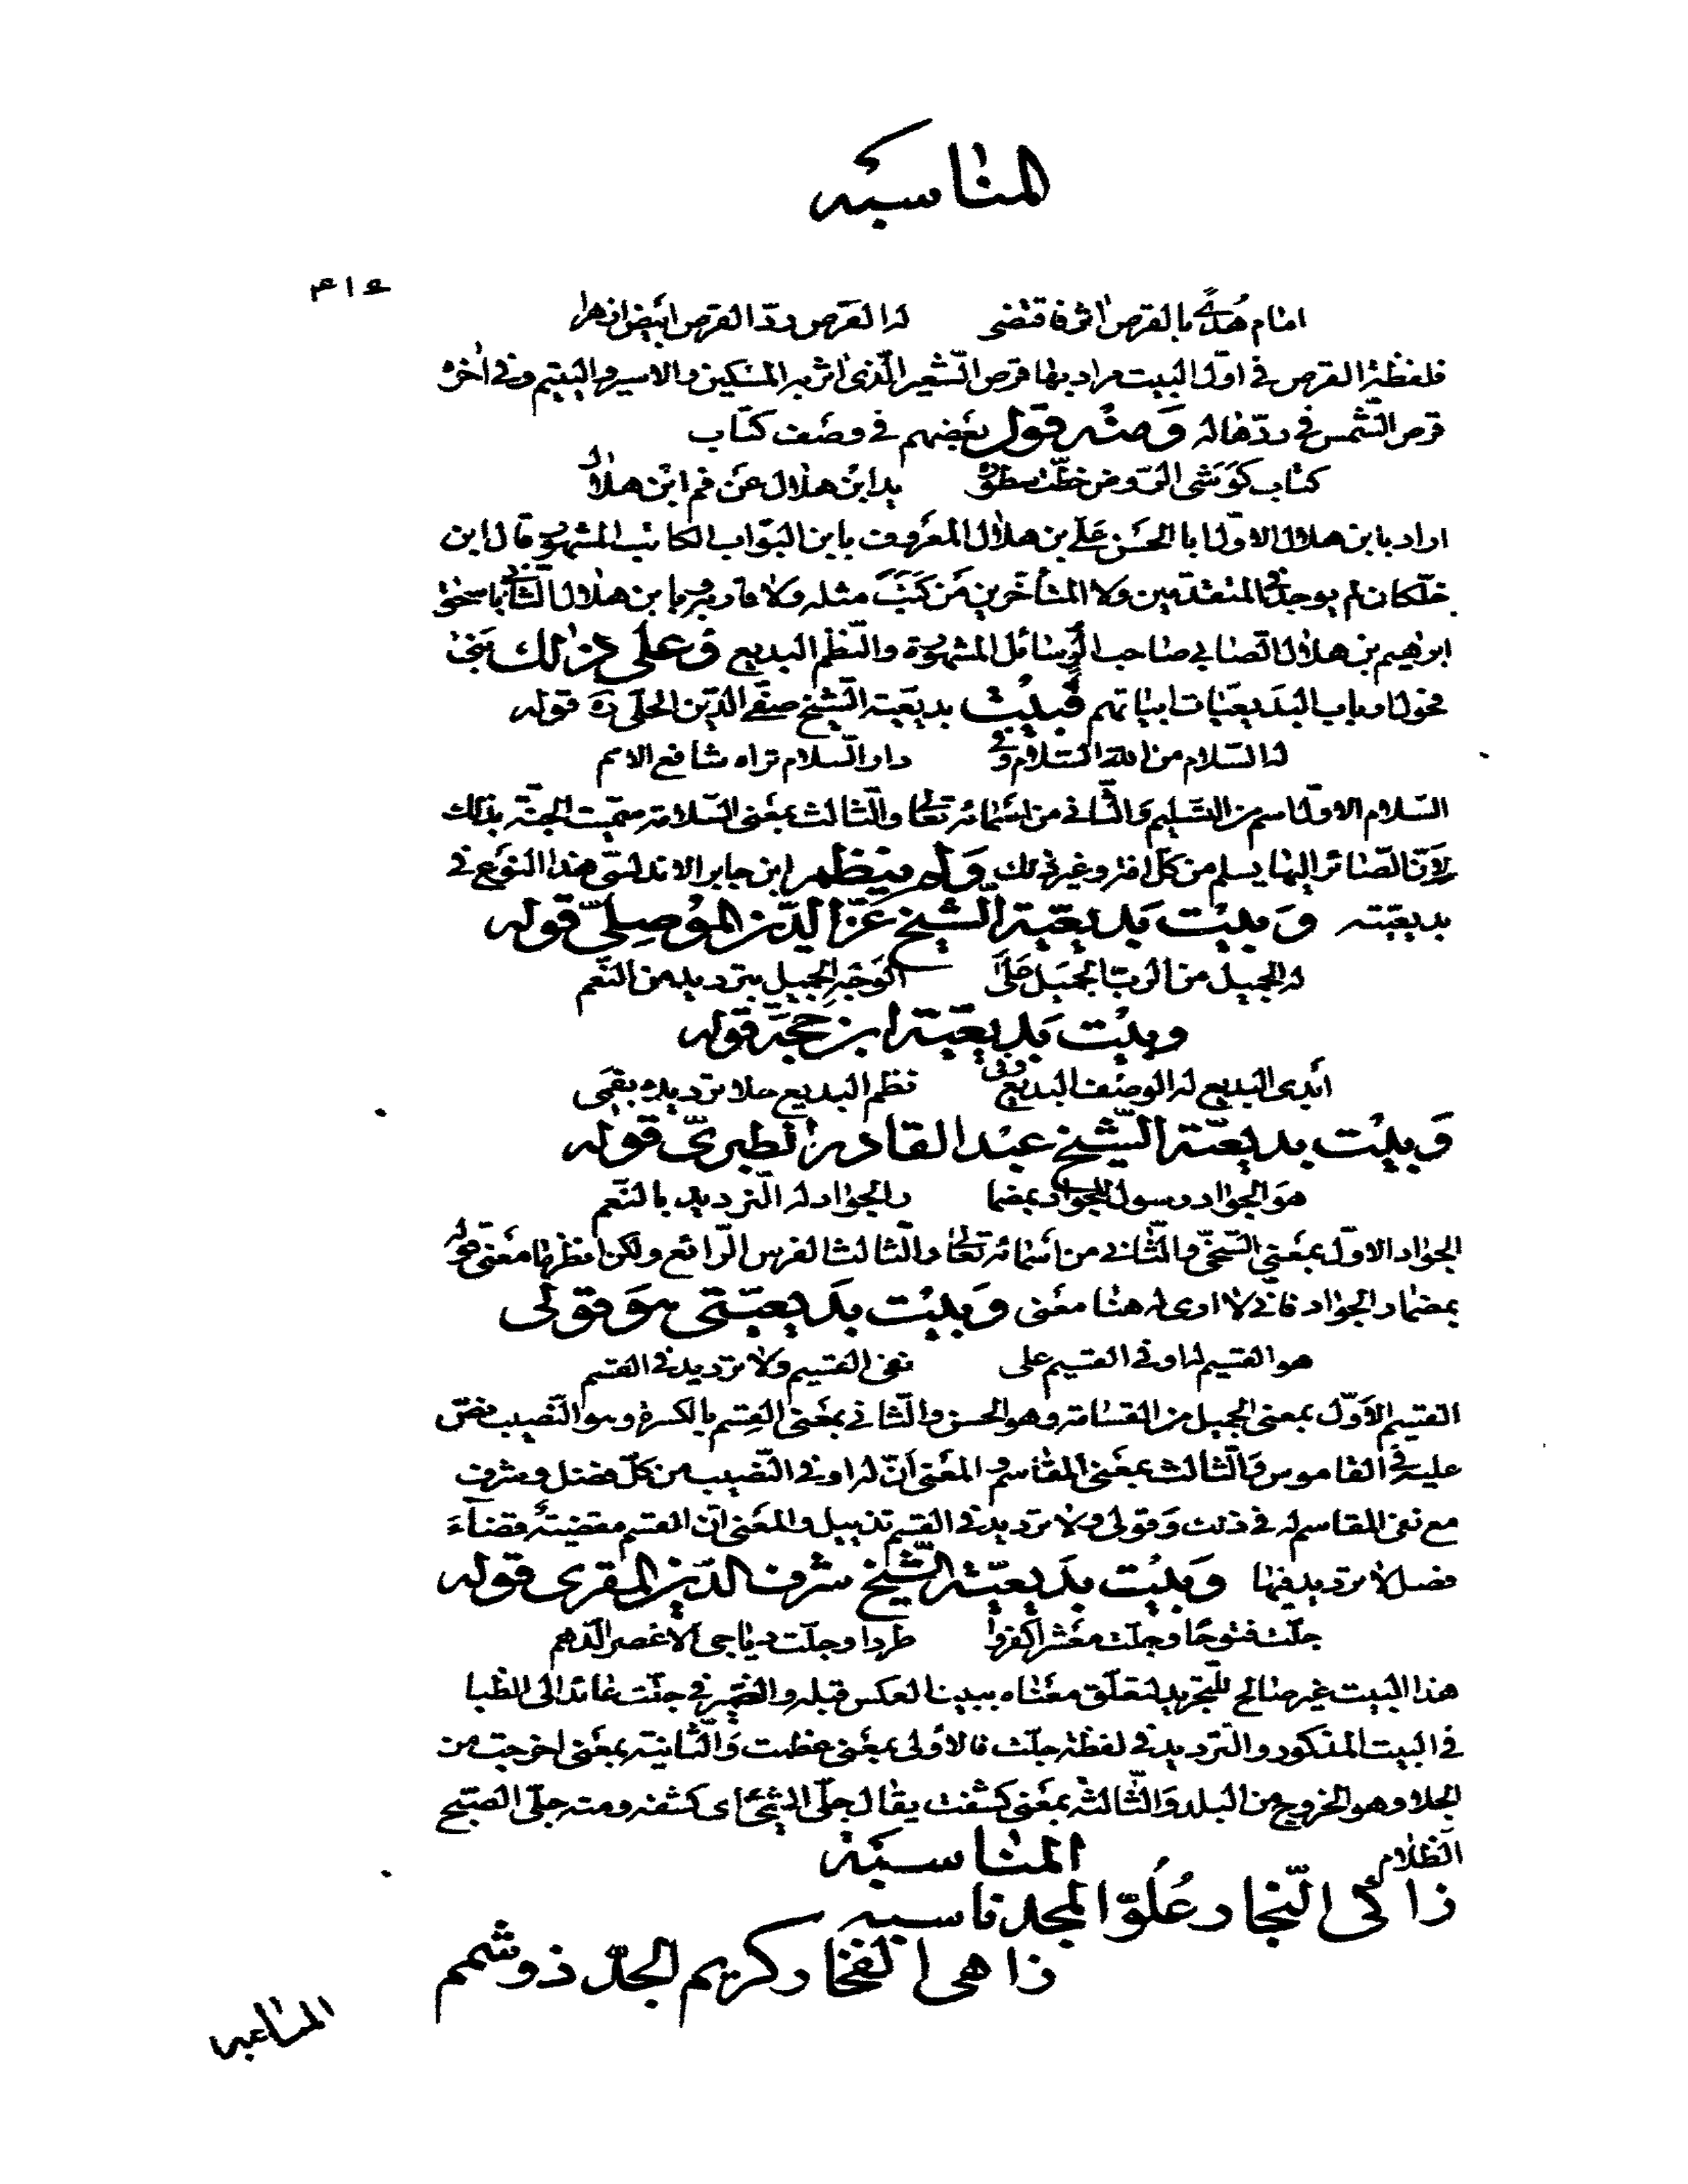 المناسبة
٣١٤
امام هُدًى بالقرص اثر فاقتضى له القرص ردّ القرص ابيض ازهرا
فلفظة القرص فى اوّل البيت مراد بها قرص الشّعير الّذى اثر به المسكين والاسير واليتيم وفى اخره
قرص الشّمس فى ردّها له وَمنه قول بعضهم فى وصف كتاب
كتاب كوَشى الرّوض خطّت سطوره يد ابن هلال عن فم ابن هلال
اراد بابن هلال الاوّل ابا الحسن علىّ بن هلال المعروف بابن البوّاب الكاتب المشهور قال ابن
خلّكان لم يوجد فى المتقدّمين ولا المتأخّرين مَن كَتَبَ مثله ولا قاربه وبابن هلال الثّانى ابا سحٰق
ابرهيم بن هلال الصّابى صاحب الرّسائل المشهورة والنّظم البديع وَعلى ذلك بنى
فحول ارباب البديعيّات ابياتهم فبيت بديعيّة الشّيخ صفىّ الدّين الحلّى ره قوله
له السّلام من الله السّلام وفى دار السّلام تراه شافع الامم
السّلام الاوّل اسم من التّسليم وَالثّانى من اسمائه تعالى والثّالث بمعنى السّلامة سمّيت الجنّة بذلك
لانّ الصّائر اليها يسلم من كلّ افة وغير ذلك وَلم ينظم ابن جابر الاندلسى هذا النّوع فى
بديعيّته وَبيت بديعيّة الشّيخ عزّ الدّين الموصلىّ قوله
له الجميل من الربّ الجميل على الوجه الجميل بترديد من النّعم
وبيت بديعيّة ابن حجّة قوله
أبدى البديع له الوصف البديع وفى نظم البديع حلا ترديده بفمى
وَبيت بديعيّة الشّيخ عبد القادر الطبرىّ قوله
هو الجواد رسول للجواد بمضما ر الجواد له التّرديد بالنّعم
الجواد الاوّل بمعنى السّخىّ والثّانى من أسمائه تعالى والثّالث الفرس الرّائع ولكن انظر ما معنى قوله
بمضمار الجواد فانّى لا ارى له هنا معنى وَبيت بديعيّتى هو قولى
هو القسيم له اوفى القسيم على نفى القسيم ولا ترديد فى القسم
القسيم الاوّل بمعنى الجميل من القسامة وهو الحسن والثّانى بمعنى القِسم بالكسر وهو النّصيب نصّ
عليه فى القاموس وَالثّالث بمعنى المقاسم والمعنى أنّ له اوفى النّصيب من كلّ فضل وشرف
مع نفى المقاسم له فى ذلك وَقولى ولا ترديد فى القسم تذييل والمعنى انّ القسم مقضيّة قضاءَ
فصل لا ترديد فيها وَبيت بديعيّة الشّيخ شرف الدّين المقرى قوله
جلّت فتوحًا وجلت معشرًا كفروا طردا وجلّت دياجى الاعصر الدّهم
هذا البيت غير صالح للتّجريد لتعلّق معناه ببيت العكس قبله والضّمير فى جلّت عائد الى الظّبا
فى البيت المذكور والترديد فى لفظة جلّت فالأولى بمعنى عظمت وَالثّانية بمعنى اخرجت من
الجلا وهو الخروج من البلد وَالثّالثة بمعنى كشفت يقال جلّى الشّىء اى كشفه ومنه جلّى الصّبح
الظّلام المناسبة
زاكى النّجار عُلُوّ المجد ناسبه
زاهى الفخار كريم الجدّ ذو شمم